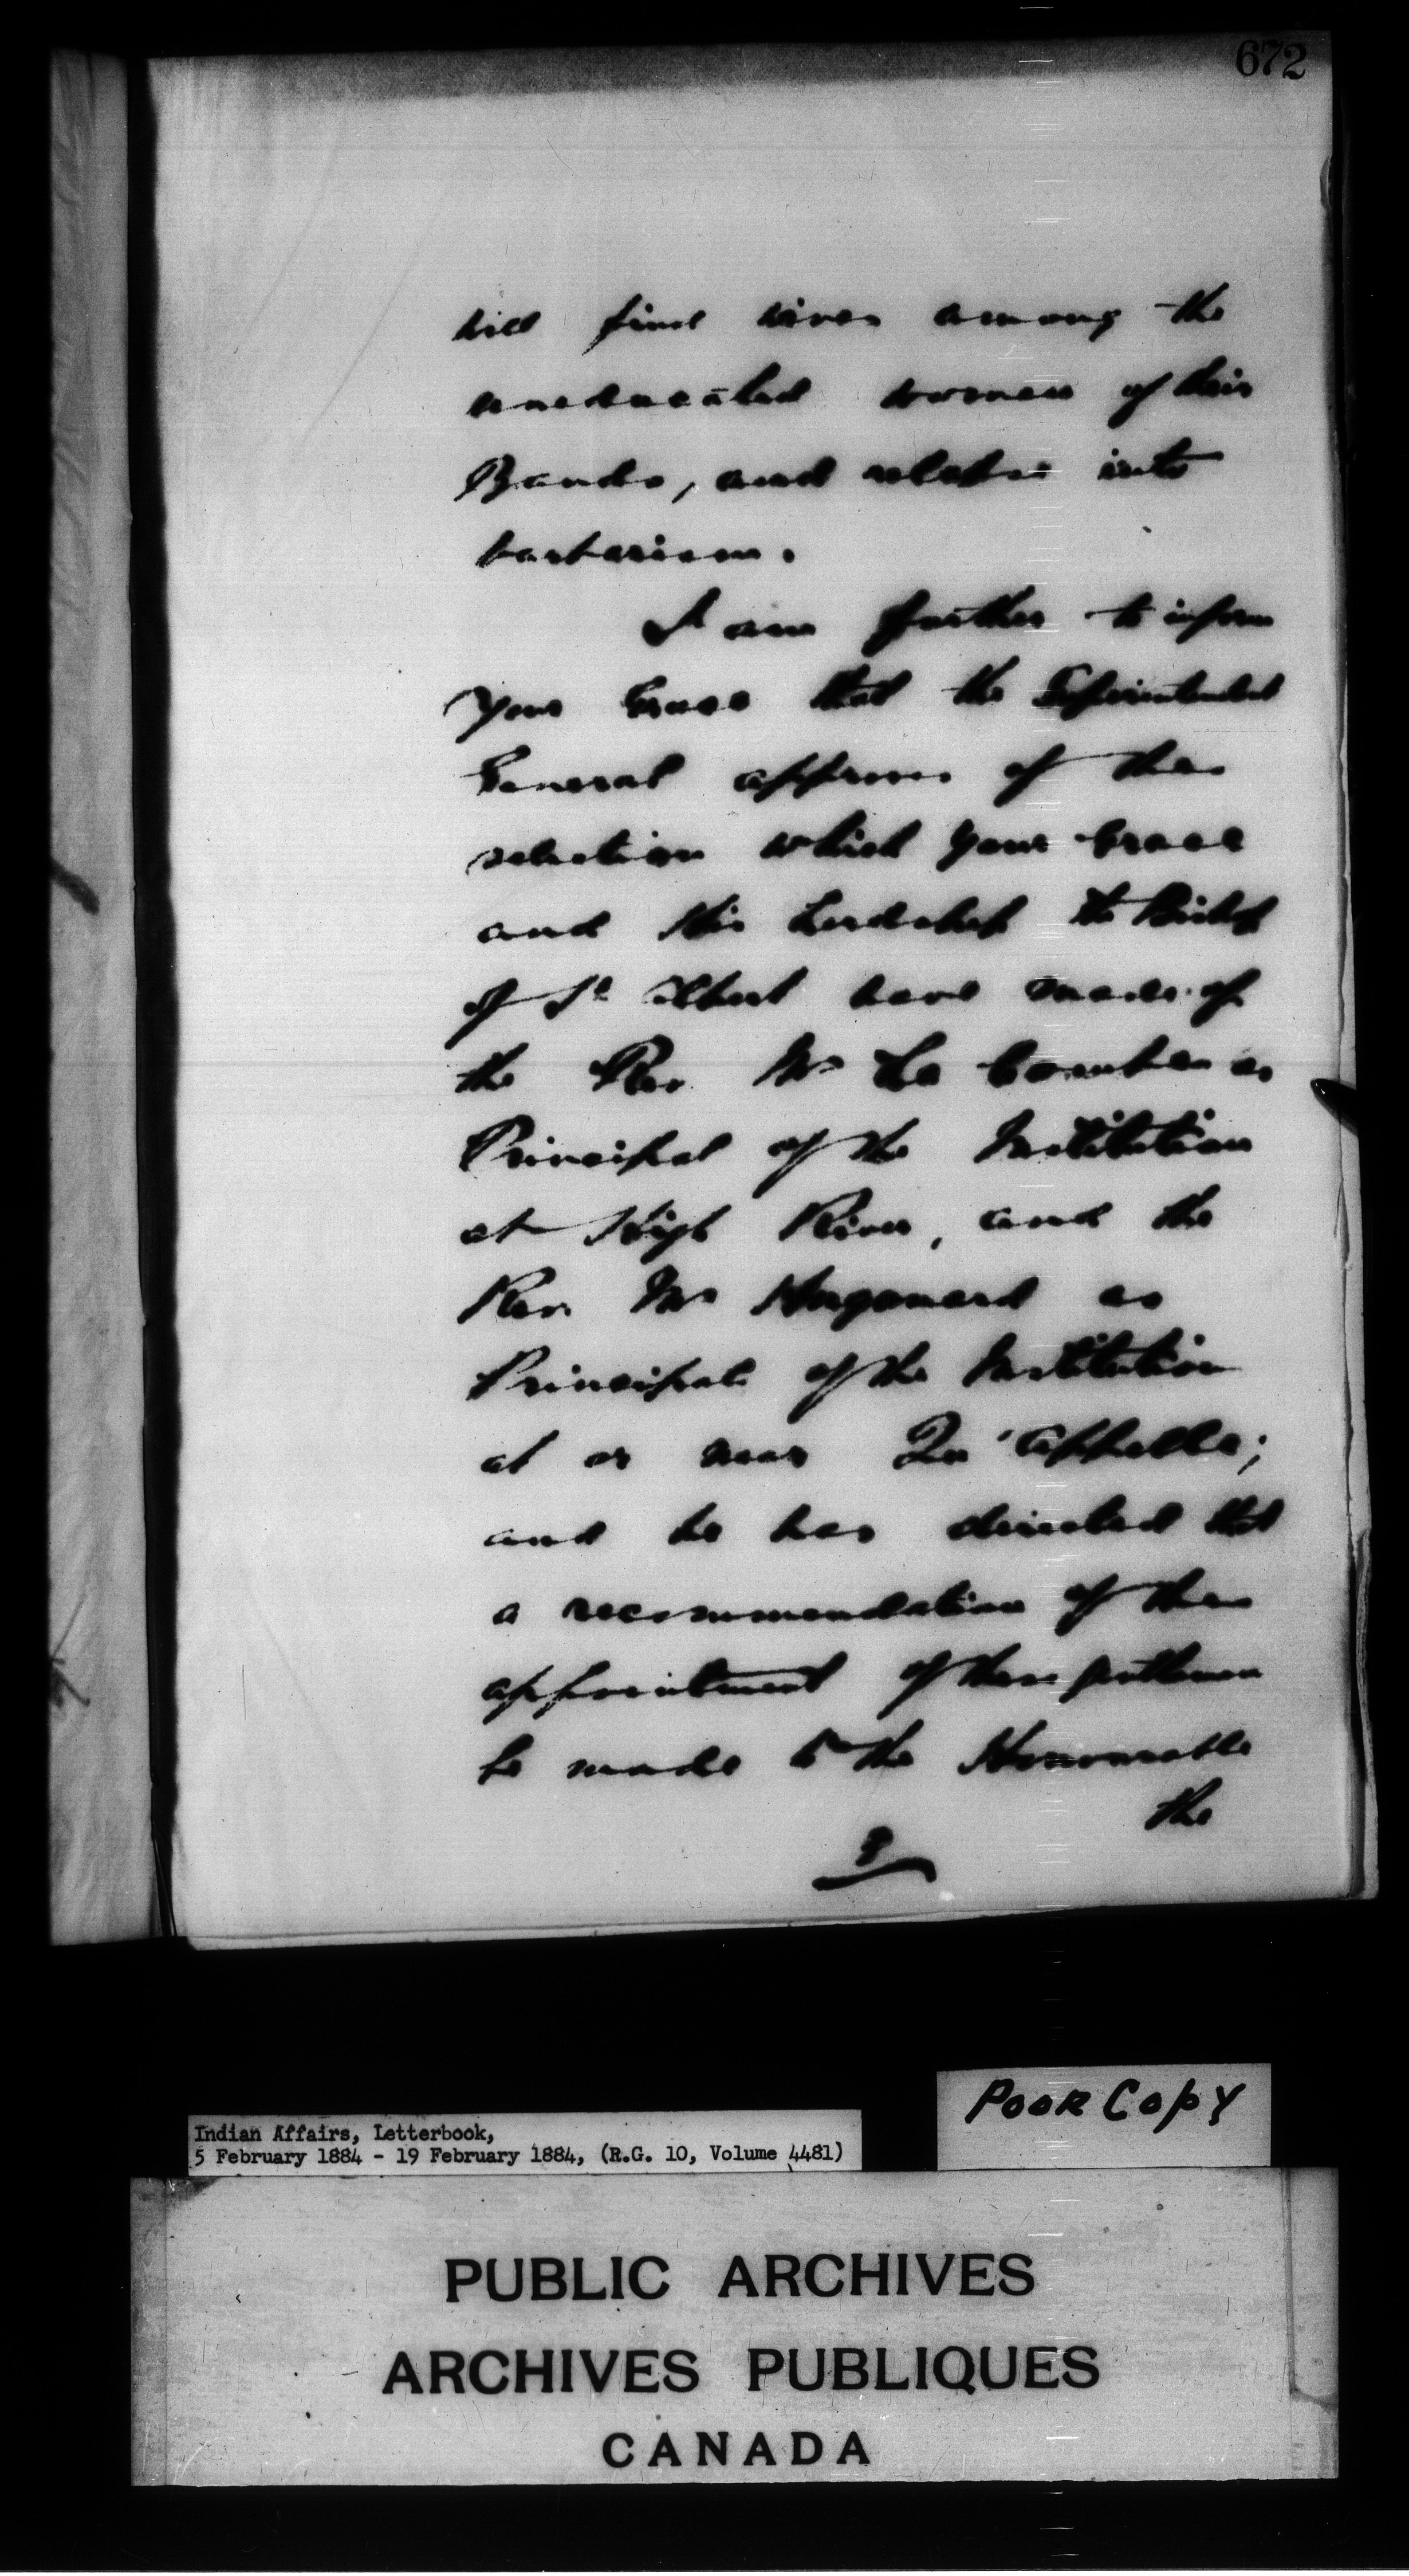 672
will find wives among the
uneducated women of their
Bands, and relapse into
barbarism.
I am further to inform
Your Grace that the Superintendent
General approves of the
selection which Your Grace
and His Lordship the Bishop
of St Albert have made of
the Rev. Mr La Combe as
Principal of the Institution
at High River, and the
Rev. Mr Hugonard as
Principal of the Institution
at or near Qu'Appelle;
and he has directed that
a recommendation of the
appointment of these gentlemen
be made to the Honourable
the
3
Poor Copy
Indian Affairs, Letterbook,
5 February 1884 - 19 February 1884, (R.G. 10, Volume 4481)
PUBLIC ARCHIVES
ARCHIVES PUBLIQUES
CANADA